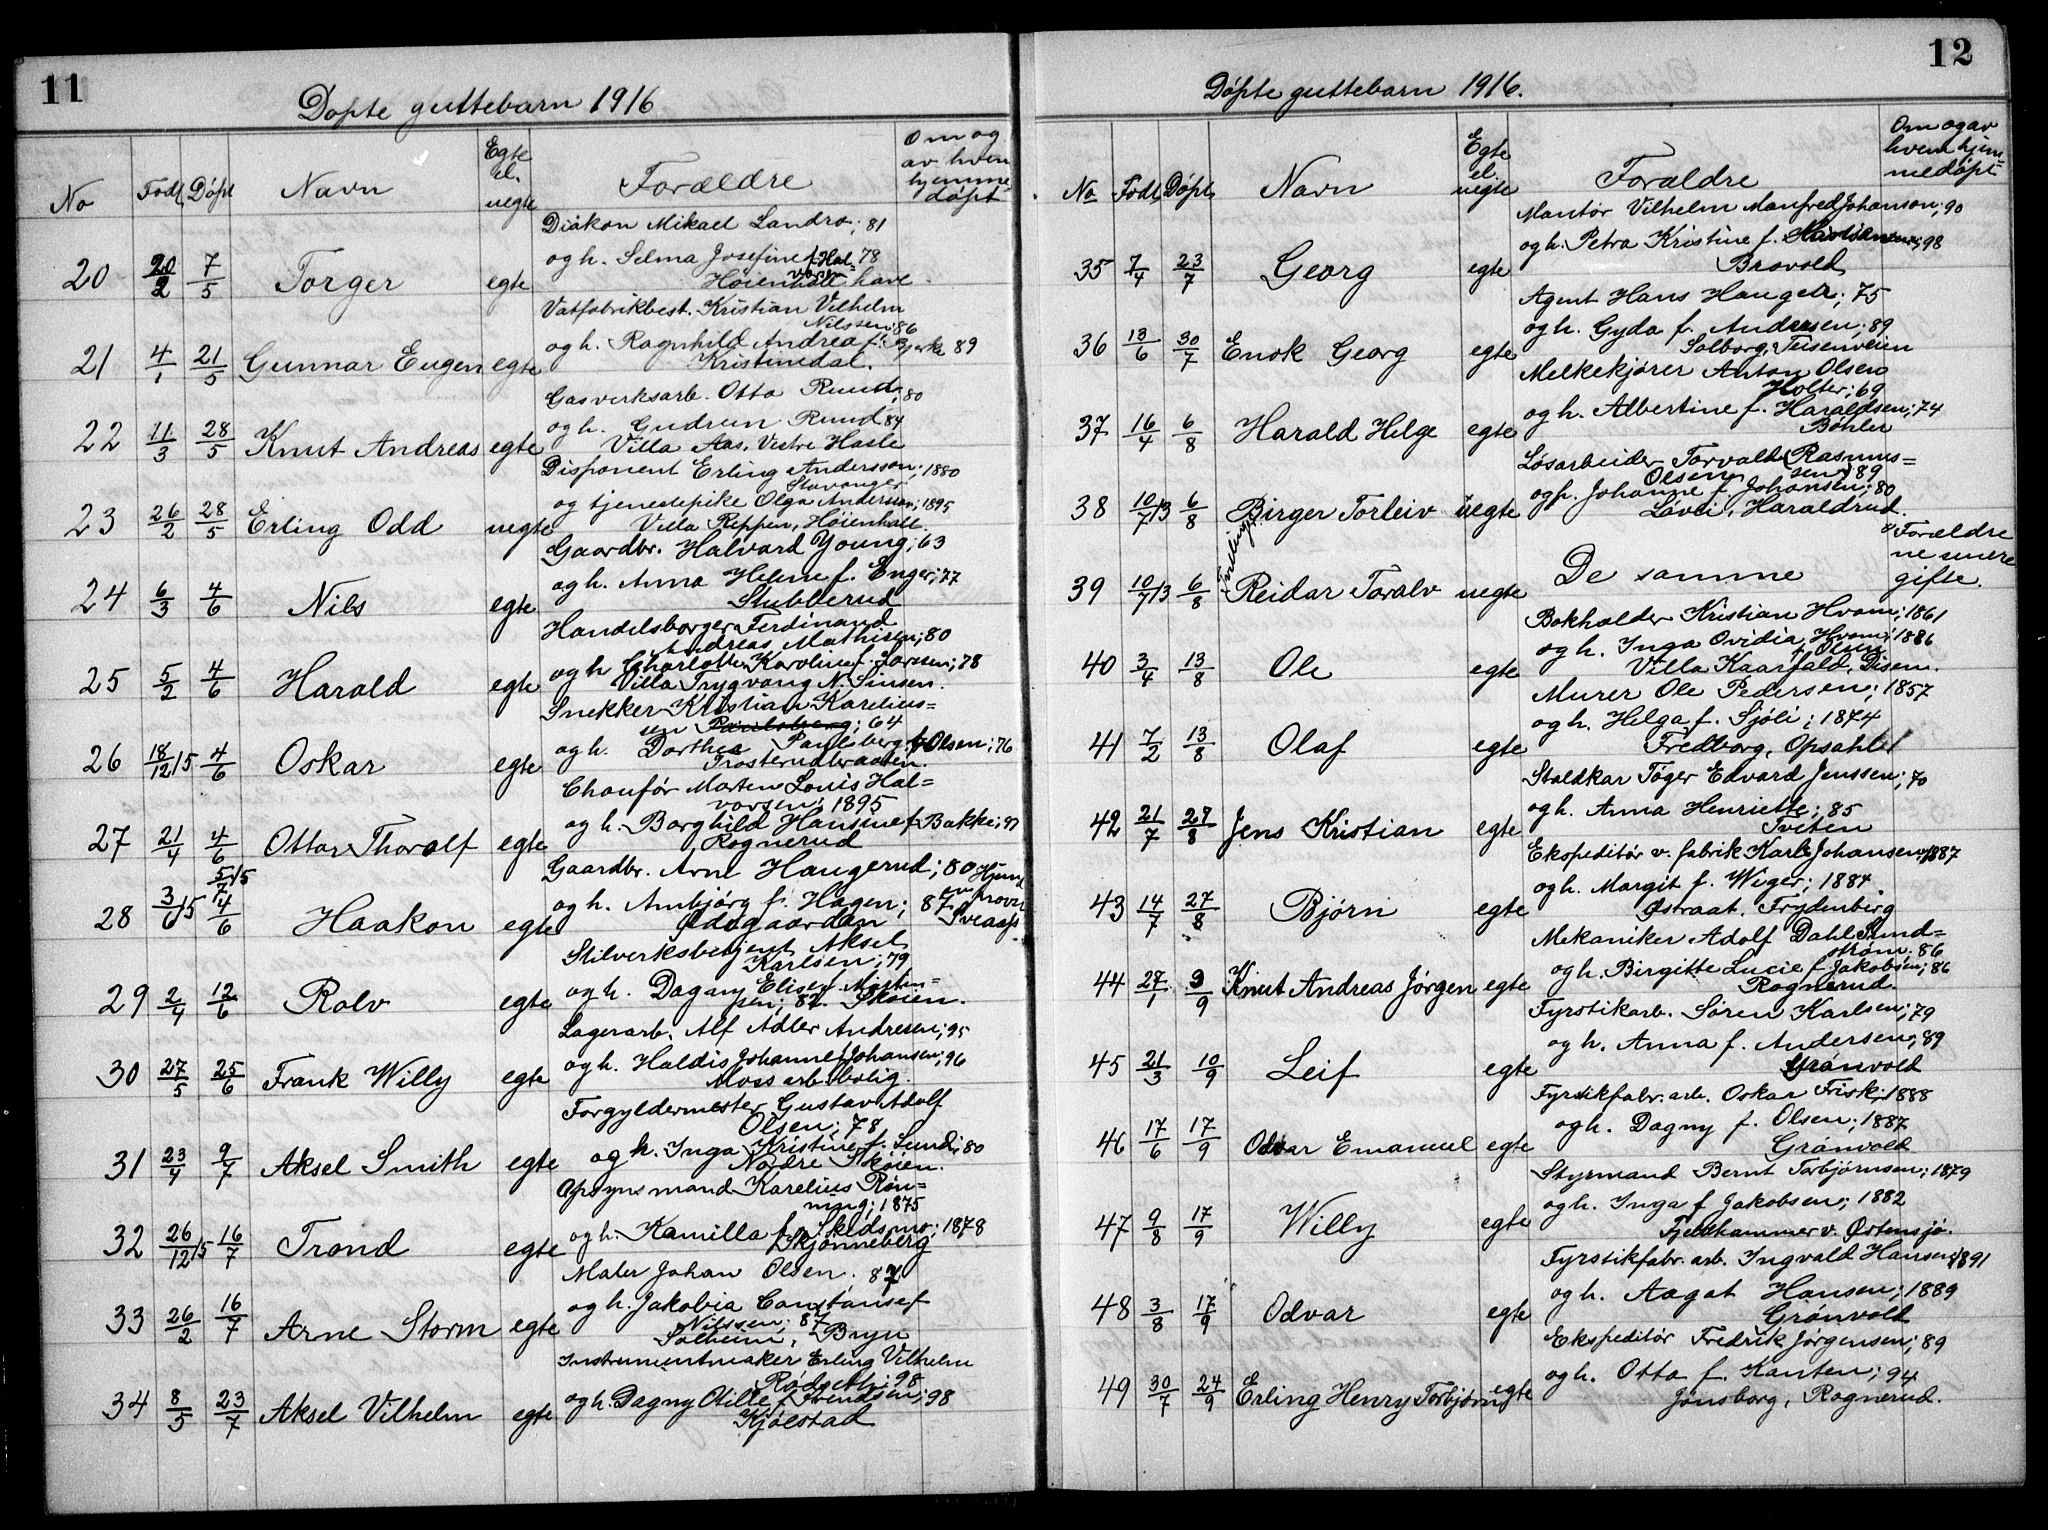 11
Døpte guttebarn 1916
No Født Døpt Navn Egte el. uegte Forældre Om og av hvem hjemmedøpt
Diakon Mikael Landro; 81
og h. Selma Josefine f. Hal= 78
vorsen
20 20/2 7/5 Torger egte Høienhall have
Vatfabrikbest. Kristian Vilhelm
Nilssen; 86
og h. Ragnhild Andrea f. Bjerke 89
21 4/1 21/5 Gunnar Eugen egte Kristinedal.
Gasverksarb. Otto Rund; 80
og h. Gudrun Rund 84
22 11/3 28/5 Knut Andreas egte Villa Aas, Vestre Hasle
Disponent Erling Andersson; 1880
Stavanger
og tjenestepike Olga Andersen; 1895
23 26/2 28/5 Erling Odd uegte Villa Reppen, Høienhall.
Gaardbr. Halvard Young; 63
og h. Anna Helene f. Enger; 77
24 6/3 4/6 Nils egte Stubberud
Handelsborger Ferdinand
Andreas Mathisen; 80
og h. Charlotte Karoline f. Larsen; 78
25 5/2 4/6 Harald egte Villa Trygvang N. Sinsen.
Snekker Kristian Karelius=
sen Paulsberg; 64
og h. Dorthea Paulsberg f. Olsen; 76
26 18/12 15 4/6 Oskar egte Trosterudbraaten.
Chauffør Morten Louis Hal=
vorsen; 1895
og h. Borghild Hansine f. Bakke; 97
27 21/4 4/6 Ottar Thoralf egte Rognerud
Gaardbr. Arne Haugerud; 80 Hjemd
5/7 15 av provst
og h. Ambjørg f. Hagen; 87 Sveaas
28 3/6 15 4/6 Haakon egte Ødegaarden
Stilverksbetjent Aksel
Karlsen; 79
og h. Dagny Elise f. Martin=
29 2/4 12/6 Rolv egte sen; 82. Skøien.
Lagerarb. Alf Adler Andresen; 95
og h. Haldis Johanne f. Johansen; 96
30 27/5 25/6 Frank Willy egte Moss arb.bolig.
Forgyldermester Gustav Adolf
Olsen; 78
og h. Inga Kristine f. Lund; 80
31 23/4 9/7 Aksel Smith egte Nordre Skøien.
Opsynsmand Karelius Røn=
ning; 1875
og h. Kamilla f. Skedsmo; 1878
32 26/12 15 16/7 Trond egte Skjønneberg
Maler Johan Olsen. 87
og h. Jakobia Constanse f.
Nilssen; 87
33 26/2 16/7 Arne Storm egte Solheim, Bryn
Instrumentmaker Erling Vilhelm
Rødseth; 98
og h. Dagny Otilie f. Svendsen; 98
34 8/5 23/7 Aksel Vilhelm egte Kjølstad
12
Døpte guttebarn 1916.
No Født Døpt Navn Egte el. uegte Forældre Om og av hvem hjemmedøpt
Montør Vilhelm Manfred Johanson; 90
og h. Petra Kristine f. Kristiansen; 98
35 7/4 23/7 Georg egte Bravold
Agent Hans Haugeli; 75
og h. Gyda f. Andersen; 89
36 13/6 30/7 Enok Georg egte Solborg, Teisenveien
Melkekjører Anton Olsen
Holter; 69
og h. Albertine f. Haraldsen; 74
37 16/4 6/8 Harald Helge egte Bøhler
Løsarbeider Torvald (Rasmus=
Olsen sen) 89
og h. Johanne f. Johansen; 80
38 10/7 13 6/8 Birger Torleiv uegte Løvli, Haraldrud.
Tvillinger
Forældre
ne senere
39 10/7 13 6/8 Reidar Toralv uegte De samme gifte.
Bokholder Kristian Hvam; 1861
og h. Inga Ovidia Hvam; 1886
f. Olsen
40 3/4 13/8 Ole egte Villa Kaarfald, Disen.
Murer Ole Pedersen; 1857
og h. Helga f. Sjøli; 1874
41 7/2 13/8 Olaf egte Fredborg, Opsahl
Staldkar Tøger Edvard Jenssen; 70
og h. Anna Henriette; 85
42 21/7 27/8 Jens Kristian egte Tveten
Ekspeditør v. fabrik Karl Johansen; 1887
og h. Margit f. Wiger; 1884.
43 14/7 27/8 Bjørn egte Østraat. Frydenberg
Mekaniker Adolf Dahl Sund=
strøm. 86
og h. Birgitte Lucie f. Jakobsen; 86
44 27/1 3/9 Knut Andreas Jørgen egte Rognerud.
Fyrstikarb. Søren Karlsen; 79
og h. Anna f. Andersen; 89
45 21/3 10/9 Leif egte Grønvold
Fyrstikfabr. arb. Oskar Frisk; 1888
og h. Dagny f. Olsen; 1887
46 17/6 17/9 Odvar Emanuel egte Grønvold
Styrmand Bernt Torbjørnsen; 1879
og h. Inga f. Jakobsen; 1882
47 9/8 17/9 Willy egte Fjeldhammer v. Østensjø.
Fyrstikfabr. arb. Ingvald Hansen; 1891
og h. Aagot Hansen; 1889
48 3/8 17/9 Odvar egte Grønvold
Ekspeditør Fredrik Jørgensen; 89
og h. Otta f. Kanten; 94
49 30/7 24/9 Erling Henry Torbjørn egte Jønsborg, Rognerud.